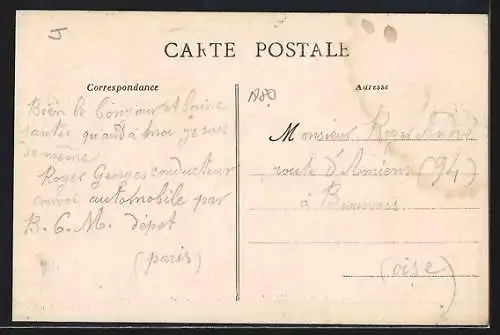 J
CARTE POSTALE
Correspondance
Adresse
Bien le bonjour et bonne
santée quand à moi je suis
de même
Roger Georges conducteur
convoi automobile par
B. C. M. dépot
(paris)
Monsieur Roger André
route d'Amiens (94)
à Beauvais
(oise)